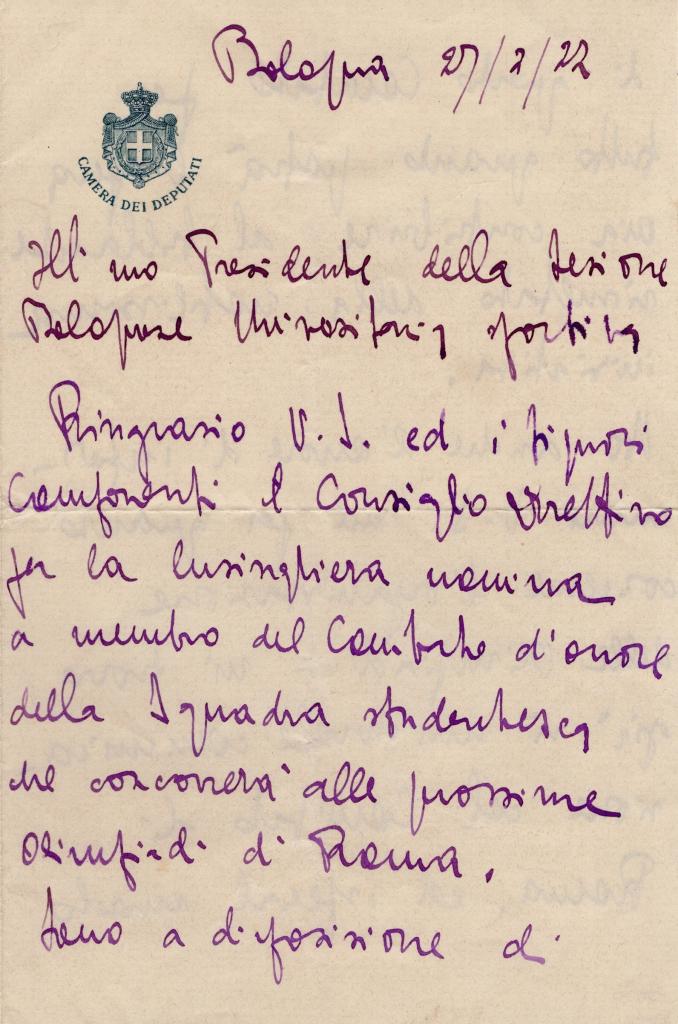 Bologna 27/2/22
CAMERA DEI DEPUTATI
Ill mo Presidente della Sezione
Bolognese Universitaria sportiva
Ringrazio V. S. ed i signori
Componenti il Consiglio direttivo
per la lusinghiera nomina
a membro del Comitato d'onore
della Squadra studentesca
che concorrerà alle prossime
Olimpiadi di Roma.
Sono a disposizione di